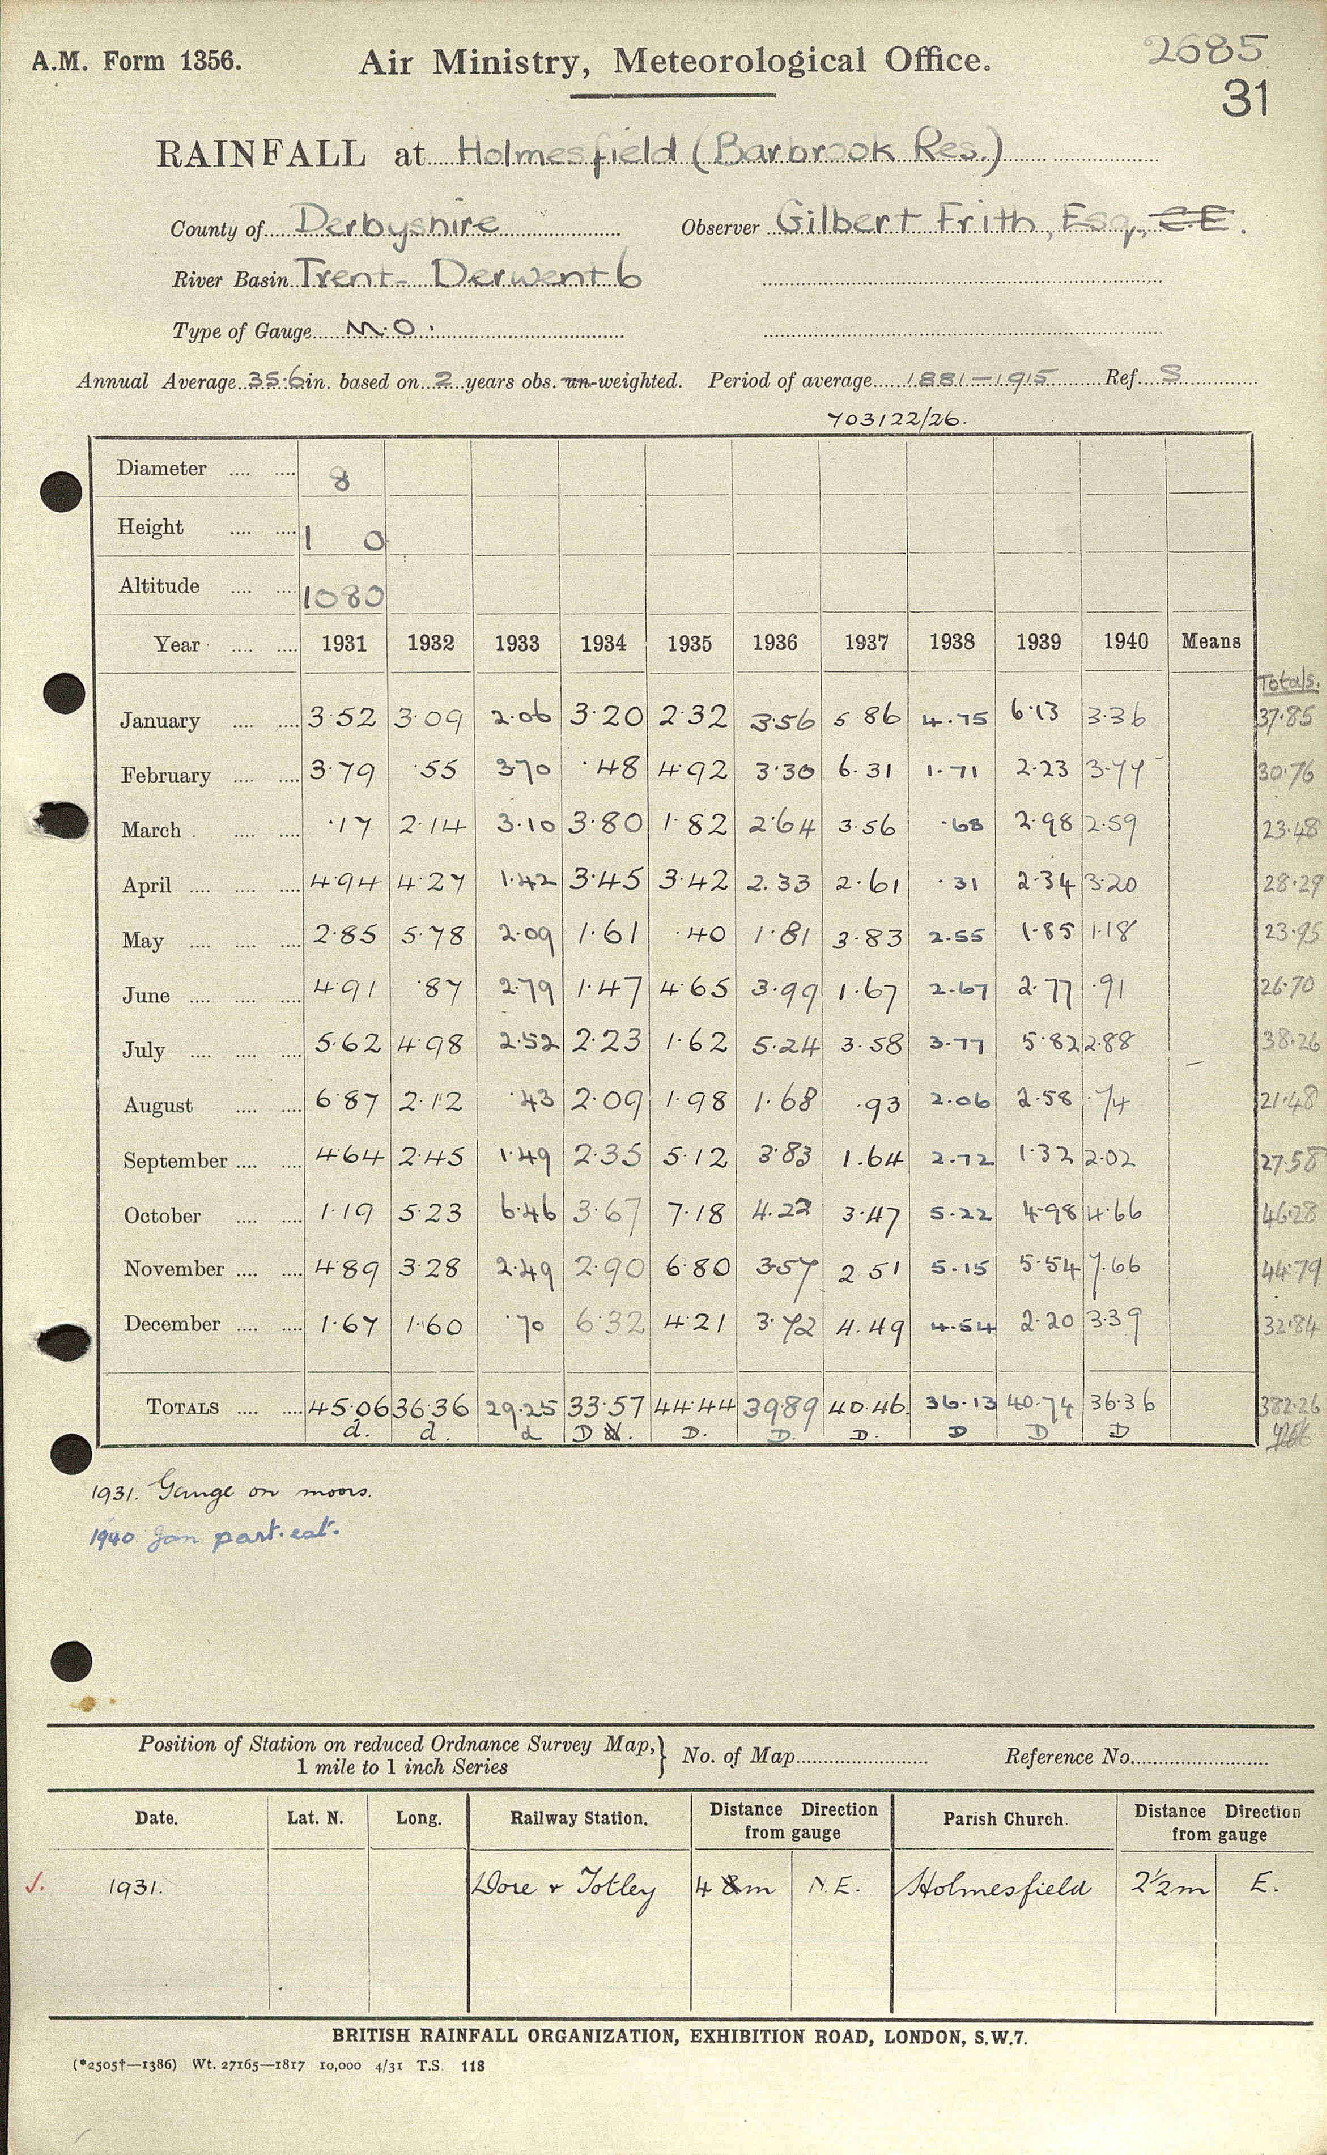 A.M. Form 1356.
Air Ministry, Meteorological Office.
2685
31
RAINFALL at Holmesfield (Barbrook Res.)
County of Derbyshire Observer Gilbert Frith, Esq., C.E.
River Basin Trent - Derwent 6
Type of Gauge M.O.
Annual Average 35.6 in. based on 2 years obs. un-weighted. Period of average 1881-1915 Ref. S
703122/26.
Diameter 8
Height 1 0
Altitude 1080
Year 1931 1932 1933 1934 1935 1936 1937 1938 1939 1940 Means
Totals.
January 3.52 3.09 2.06 3.20 2.32 3.56 5.86 4.75 6.13 3.36 37.85
February 3.79 .55 3.70 .48 4.92 3.30 6.31 1.71 2.23 3.77 30.76
March .17 2.14 3.10 3.80 1.82 2.64 3.56 .68 2.98 2.59 23.48
April 4.94 4.27 1.42 3.45 3.42 2.33 2.61 .31 2.34 3.20 28.29
May 2.85 5.78 2.09 1.61 .40 1.81 3.83 2.55 1.85 1.18 23.95
June 4.91 .87 2.79 1.47 4.65 3.99 1.67 2.67 2.77 .91 26.70
July 5.62 4.98 2.52 2.23 1.62 5.24 3.58 3.77 5.82 2.88 38.26
August 6.87 2.12 .43 2.09 1.98 1.68 .93 2.06 2.58 .74 21.48
September 4.64 2.45 1.49 2.35 5.12 3.83 1.64 2.72 1.32 2.02 27.58
October 1.19 5.23 6.46 3.67 7.18 4.22 3.47 5.22 4.98 4.66 46.28
November 4.89 3.28 2.49 2.90 6.80 3.57 2.51 5.15 5.54 7.66 44.79
December 1.67 1.60 .70 6.32 4.21 3.72 4.49 4.54 2.20 3.39 32.84
TOTALS 45.06 36.36 29.25 33.57 44.44 39.89 40.46 36.13 40.74 36.36 382.26
d. d. d D D. D. D. D D D
1931. Gauge on moors.
1940 Jan part. est.
Position of Station on reduced Ordnance Survey Map, 1 mile to 1 inch Series } No. of Map Reference No.
Date. Lat. N. Long. Railway Station. Distance Direction from gauge Parish Church. Distance Direction from gauge
1931. Dore & Totley 4 m N.E. Holmesfield 2½m E.
BRITISH RAINFALL ORGANIZATION, EXHIBITION ROAD, LONDON, S.W.7.
(*2505†—1386) Wt. 27165—1817 10,000 4/31 T.S. 118